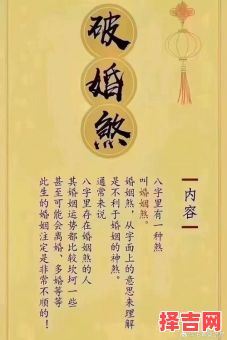 破
婚
煞
内容
八字里有一种煞
叫婚姻煞。
婚姻煞，从字面上的意思来理解
是不利于婚姻的神煞。
通常来说
八字里存在婚姻煞的人
其婚姻运势都比较坎坷一些
甚至可能会离婚、多婚等等
此生的婚姻注定是非常不顺的！
择吉网